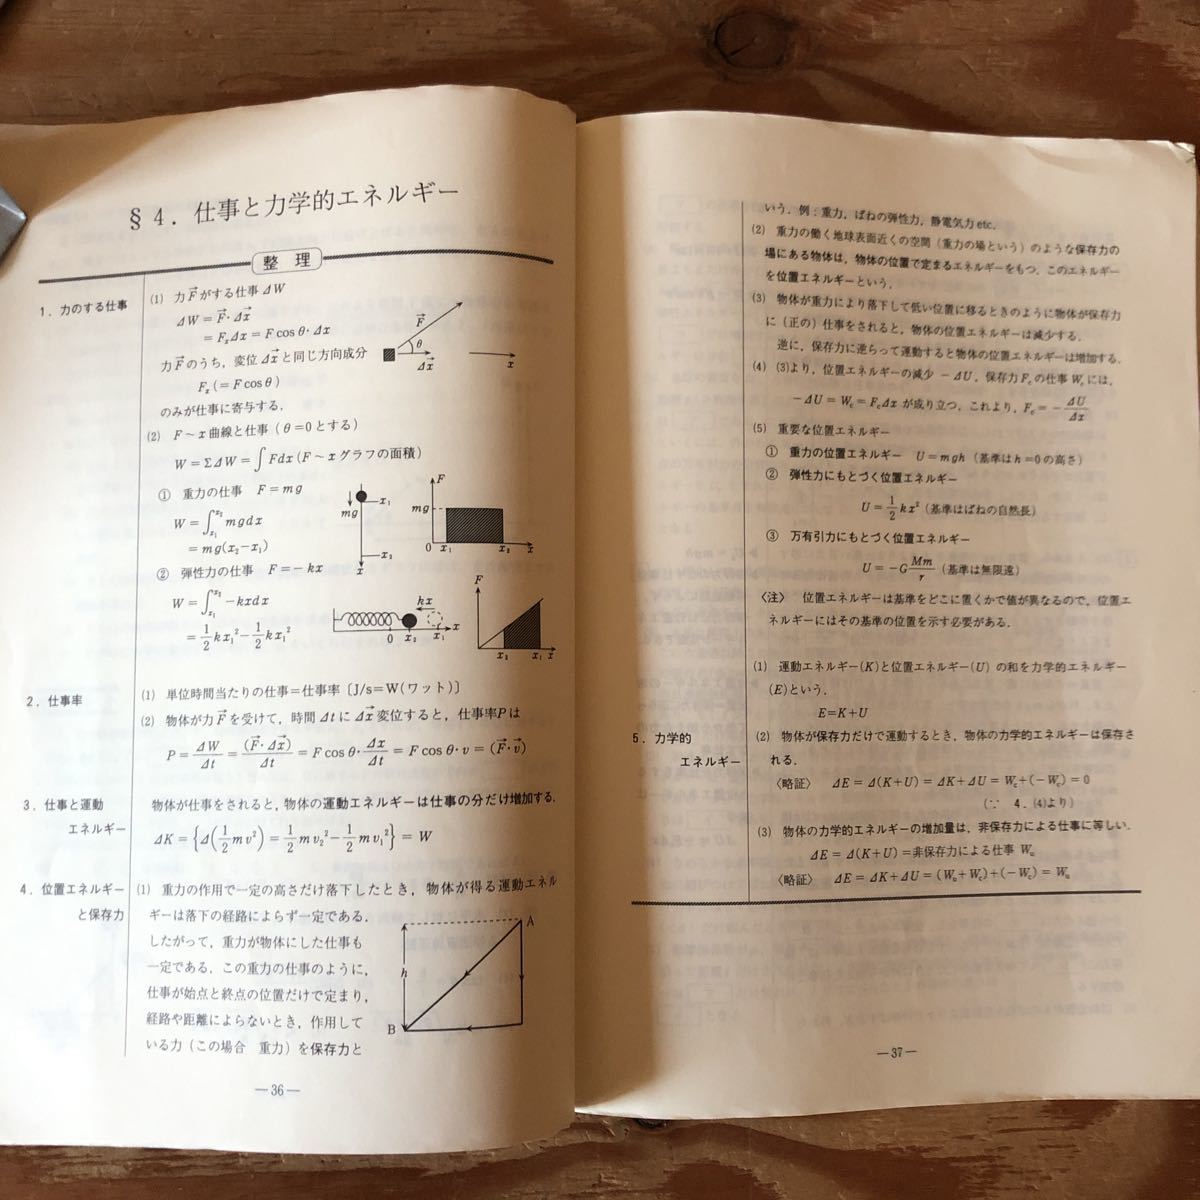 §4. 仕事と力学的エネルギー
整 理
1. 力のする仕事
(1) 力F⃗がする仕事 ΔW
ΔW = F⃗·Δx⃗
= FₓΔx = F cos θ·Δx
力F⃗のうち，変位Δx⃗と同じ方向成分
Fₓ(= F cos θ)
のみが仕事に寄与する．
F⃗
θ
Δx⃗
x
(2) F～x曲線と仕事（θ=0とする）
W = ΣΔW = ∫Fdx (F～xグラフの面積)
① 重力の仕事 F = mg
W = ∫ₓ₁ˣ² mgdx
= mg(x₂−x₁)
mg
x₁
x₂
x
F
mg
0 x₁ x₂ x
② 弾性力の仕事 F = −kx
W = ∫ₓ₁ˣ² −kxdx
= 1/2 kx₁² − 1/2 kx₂²
kx
0 x₂ x₁ x
F
x₂ x₁ x
2. 仕事率
(1) 単位時間当たりの仕事＝仕事率〔J/s=W(ワット)〕
(2) 物体が力F⃗を受けて，時間ΔtにΔx⃗変位すると，仕事率Pは
P = ΔW/Δt = (F⃗·Δx⃗)/Δt = F cos θ·Δx/Δt = F cos θ·v = (F⃗·v⃗)
3. 仕事と運動
エネルギー
物体が仕事をされると，物体の運動エネルギーは仕事の分だけ増加する．
ΔK = {Δ(1/2 mv²) = 1/2 mv₂² − 1/2 mv₁²} = W
4. 位置エネルギー
と保存力
(1) 重力の作用で一定の高さだけ落下したとき，物体が得る運動エネル
ギーは落下の経路によらず一定である．
したがって，重力が物体にした仕事も
一定である．この重力の仕事のように，
仕事が始点と終点の位置だけで定まり，
経路や距離によらないとき，作用して
いる力（この場合 重力）を保存力と
A
h
B
—36—
いう．例：重力，ばねの弾性力，静電気力etc.
(2) 重力の働く地球表面近くの空間（重力の場という）のような保存力の
場にある物体は，物体の位置で定まるエネルギーをもつ．このエネルギー
を位置エネルギーという．
(3) 物体が重力により落下して低い位置に移るときのように物体が保存力
に（正の）仕事をされると，物体の位置エネルギーは減少する．
逆に，保存力に逆らって運動すると物体の位置エネルギーは増加する．
(4) (3)より，位置エネルギーの減少 −ΔU，保存力F꜀の仕事W꜀には，
−ΔU = W꜀ = F꜀Δx が成り立つ．これより，F꜀ = −ΔU/Δx
(5) 重要な位置エネルギー
① 重力の位置エネルギー U = mgh（基準はh=0の高さ）
② 弾性力にもとづく位置エネルギー
U = 1/2 kx²（基準はばねの自然長）
③ 万有引力にもとづく位置エネルギー
U = −G Mm/r（基準は無限遠）
〈注〉 位置エネルギーは基準をどこに置くかで値が異なるので，位置エ
ネルギーにはその基準の位置を示す必要がある．
5. 力学的
エネルギー
(1) 運動エネルギー(K)と位置エネルギー(U)の和を力学的エネルギー
(E)という．
E=K+U
(2) 物体が保存力だけで運動するとき，物体の力学的エネルギーは保存さ
れる．
〈略証〉 ΔE = Δ(K+U) = ΔK+ΔU = W꜀+(−W꜀) = 0
(∵ 4. (4)より)
(3) 物体の力学的エネルギーの増加量は，非保存力による仕事に等しい．
ΔE = Δ(K+U)=非保存力による仕事 Wᵤ
〈略証〉 ΔE = ΔK+ΔU = (Wᵤ+W꜀)+(−W꜀) = Wᵤ
—37—